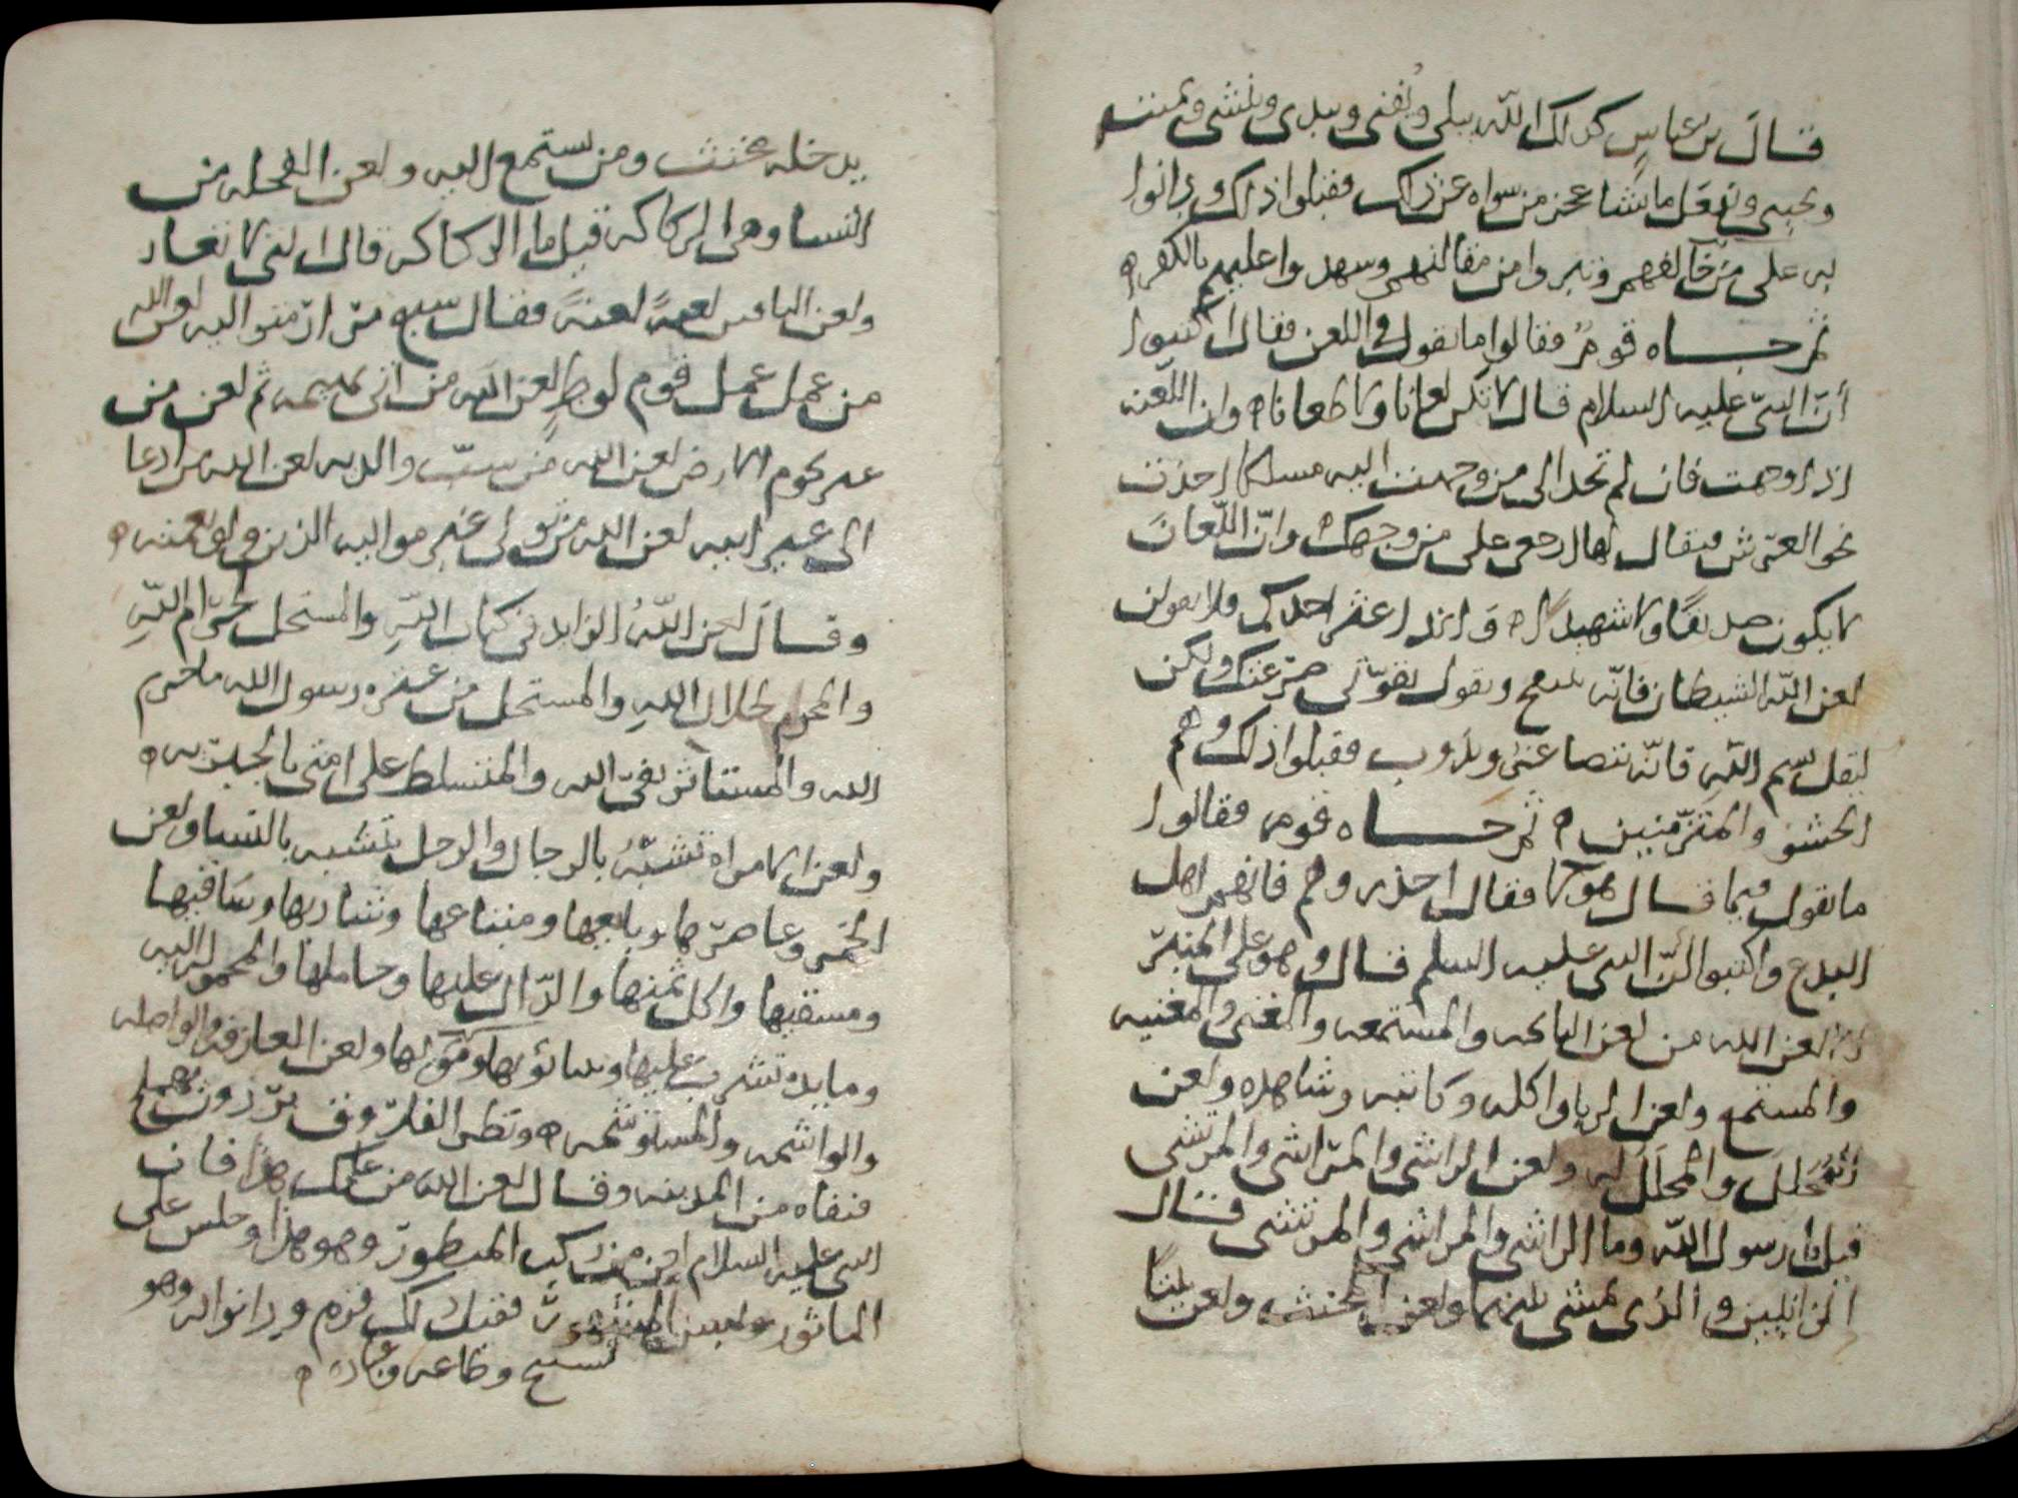 قال بن عباس كذلك الله يبلي ويفني ويبدي وينشي ويميت
ويحيي ويفعل ما يشا عجز من سواه عن ذلك فقبلوا ذلك ودانوا
به على من خالفهم وتبروا من مقالتهم وشهدوا عليهم بالكفر ه
ثم جاه قوم فقالوا ما تقول في اللعن فقال اكتبوا
أن النبي عليه السلام قال لا تكن لعانا ولا طعانا ه وان اللعنه
اذا وجهت فان لم تجد الى من وجهت اليه مسلكا اخذت
نحو العرش فيقال لها ارجعي على من وجهك ه وان اللعان
لا يكون صديقا ولا شهيدا ه واذا عثر احدكم فلا يقولن
لعن الله الشيطان فانه ويقول بقوتي صرعتك ولكن
ليقل بسم الله فانه يتصاغر ويذوب فقبلوا ذلك وهم
الحشو والمتزمتين ه ثم جاه قوم فقالوا
ما تقول فيما قال هولا فقال احذروهم فانهم اهل
البدع واكتبوا ان النبي عليه السلم قال وهو على المنبر
الا لعن الله من لعن النايحه والمستمعه والمغني والمغنيه
والمستمع ولعن الربا واكله وكاتبه وشاهده ولعن
المحلل والمحلل له ولعن الراشي والمراشي والمرتشي
قيل يا رسول الله وما الراشي والمراشي والمرتشي فقال
الزانيين والذي يمشي بينهما ولعن المخنث ولعن بيتا
يدخله مخنث ومن يستمع اليه ولعن الفحله من
النسا وهي الركاكه قيل ما الركاكه قال التي لا تغار
ولعن الباقين لعنة لعنة فقال سبع من ازمتوا اليه لعن الله
من عمل عمل قوم لوط لعن الله من اتى بهيمه ثم لعن من
غير تخوم الارض لعن الله من سب والديه لعن الله من ادعا
الى غير ابيه لعن الله من تولى غير مواليه الذين ولوا نعمته ه
وقال لعن الله الزايد في كتاب الله والمستحل لحرام الله
والمحرم لحلال الله والمستحل من عتره رسول الله ما حرم
الله والمستاثر بفي الله والمتسلط على امتي بالجبريه ه
ولعن الامراه تتشبه بالرجال والرجل يتشبه بالنسا ولعن
الخمر وعاصرها وبايعها ومبتاعها وشاربها وساقيها
ومسقيها واكل ثمنها والدال عليها وحاملها والمحموله اليه
ومايده تشرب عليها ولعن العازفه والواصله
والواشمه والمستوشمه ه ونظر الى برذون هملج
فنفاه من المدينه وقال لعن الله من علك هذا فان
النبي عليه السلام لعن من ركب المنظور وهو هذا وجلس على
الماثور ولبس المشهور فقبل ذلك قوم ودانوا له وهو
تشيع وطاعه